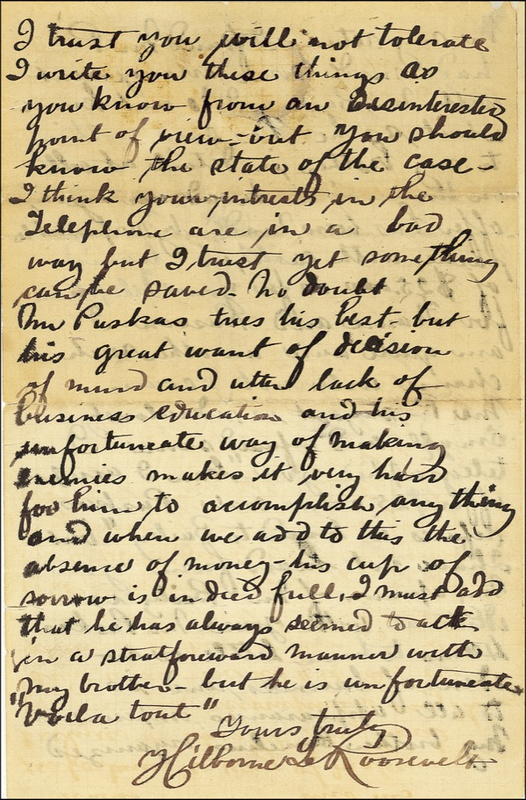 I trust you will not tolerate
I write you these things as
you know from an disinterested
point of view - but you should
know the state of the case -
I think your intrests in the
Telephone are in a bad
way but I trust yet something
can be saved - No doubt
Mr Puskas tries his best but
his great want of decision
of mind and utter lack of
business education and his
unfortuneate way of making
enemies makes it very hard
for him to accomplish anything
and when we add to this the
absence of money - his cup of
sorrow is indeed full. I must add
that he has always seemed to act
in a stratforward manner with
my brother - but he is unfortuneate
"Voila tout"
Yours truly
Hilborne L Roosevelt